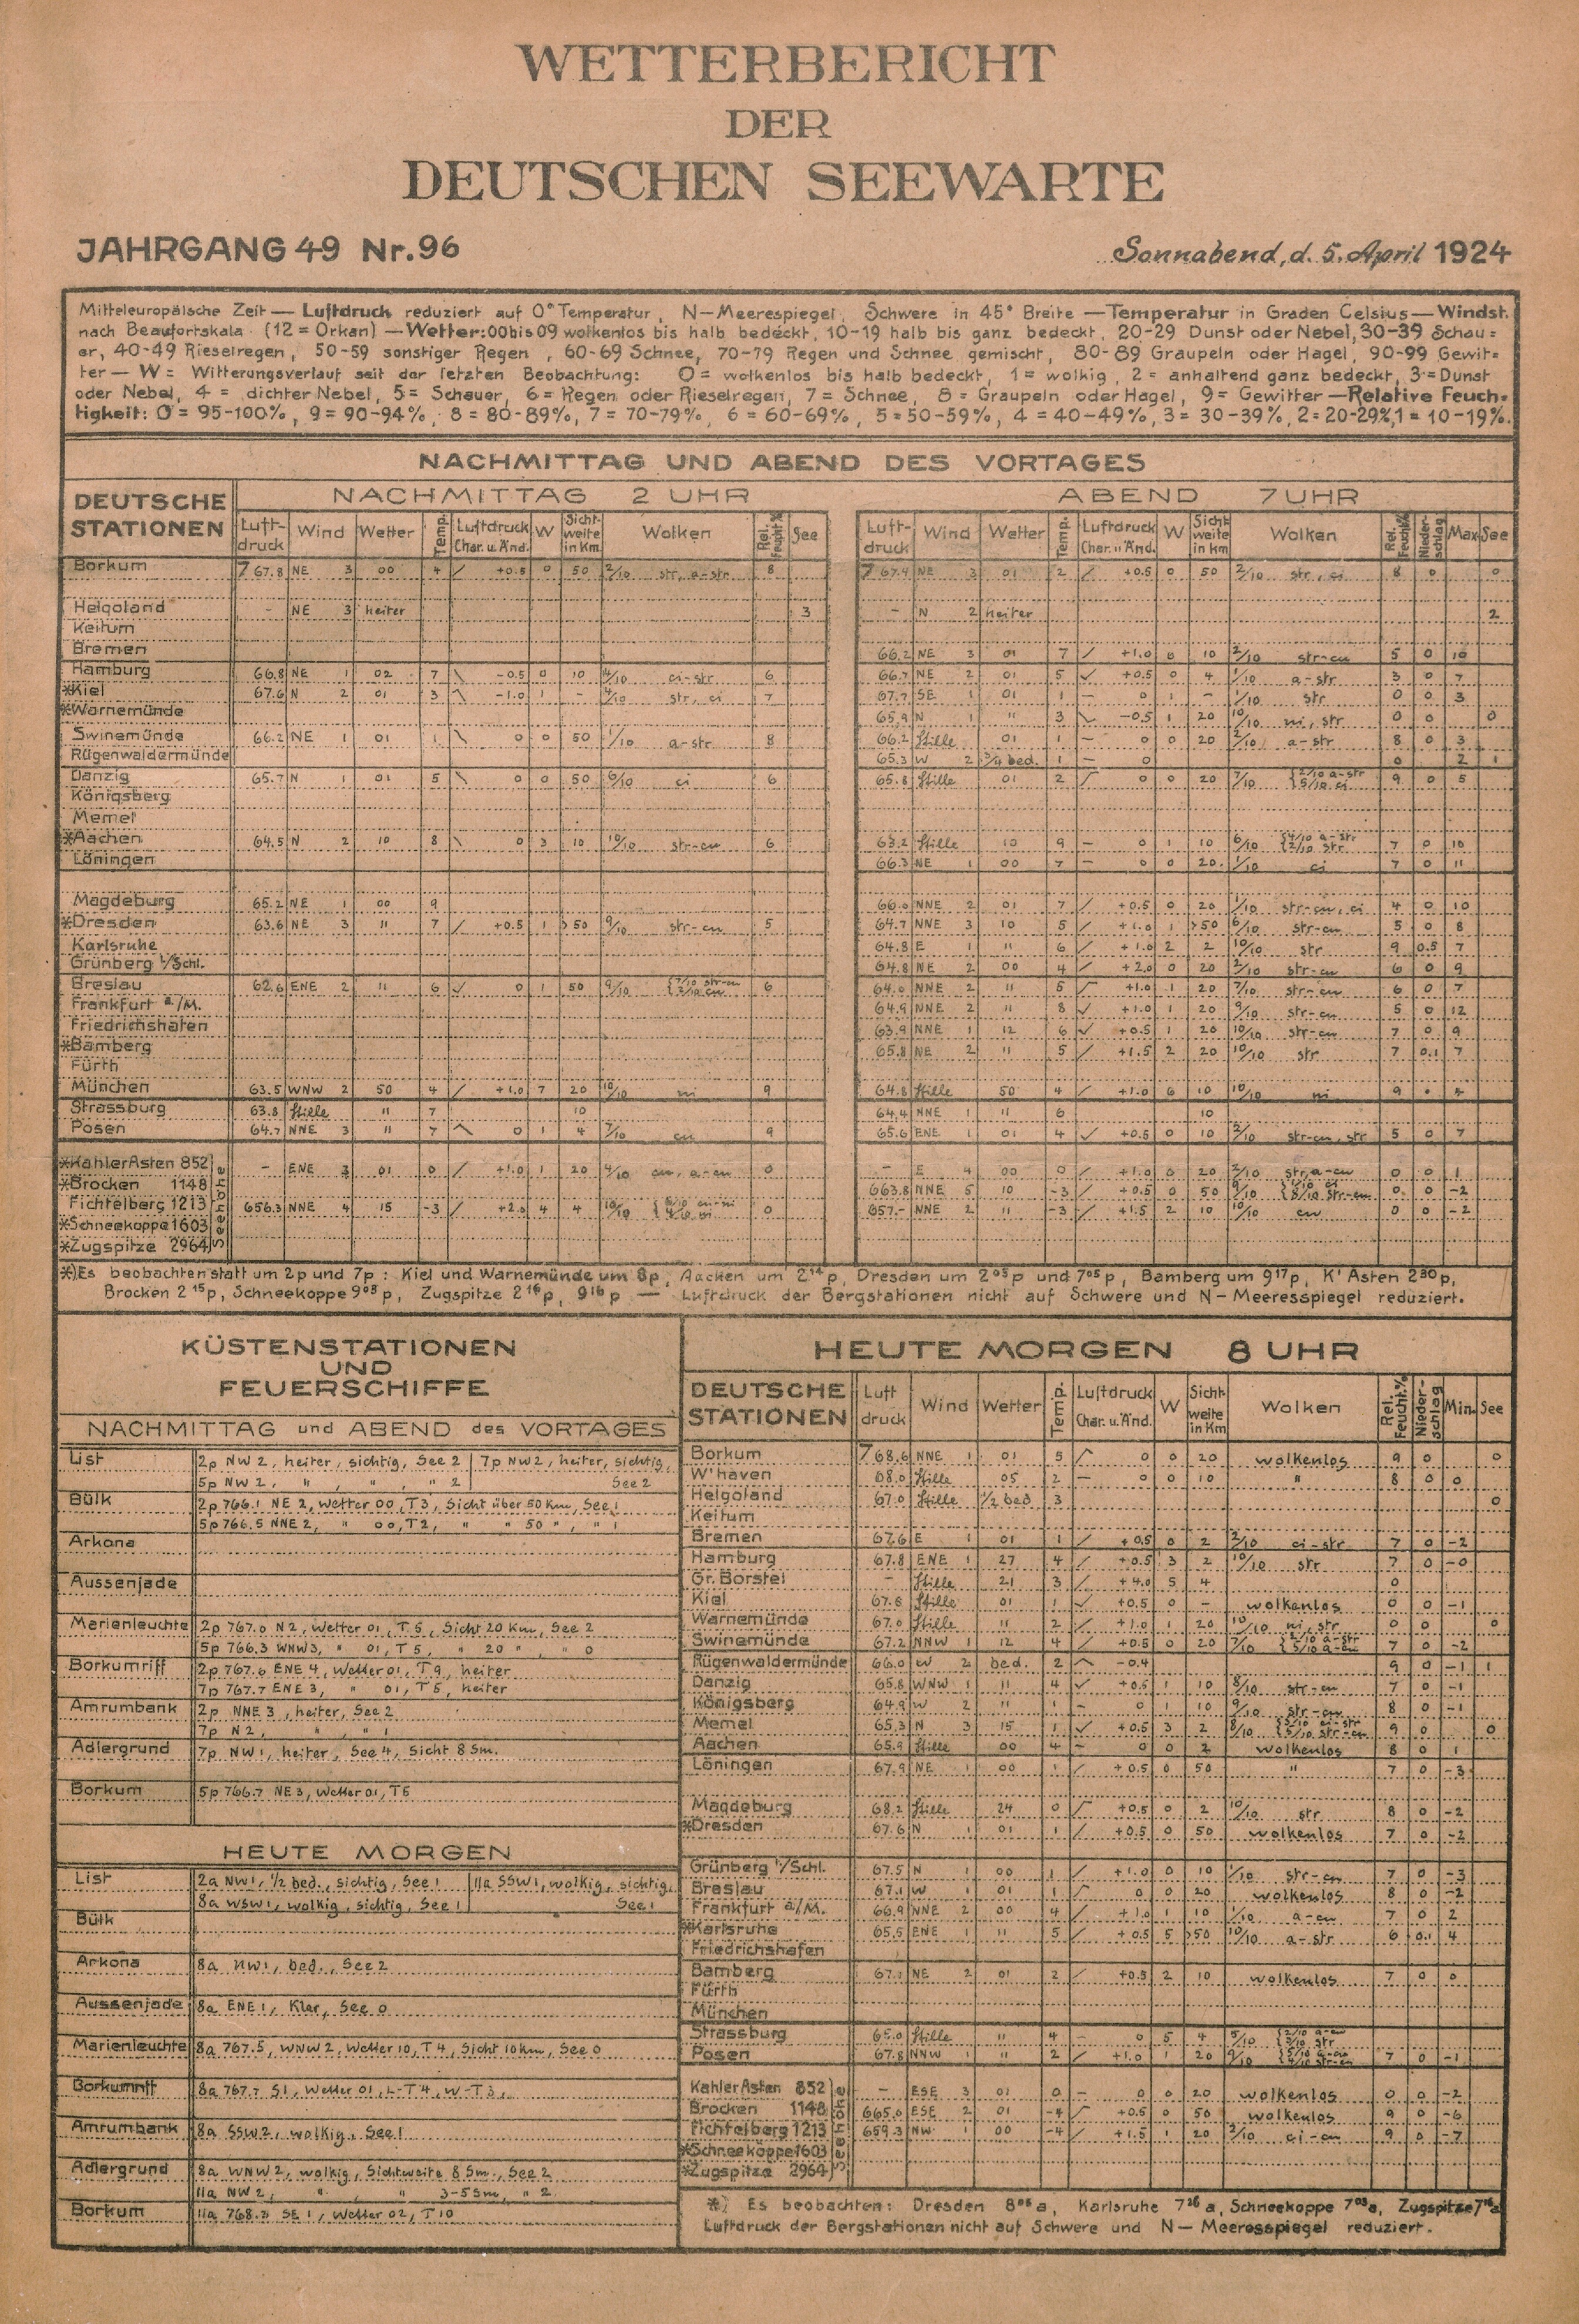 WETTERBERICHT
DER
DEUTSCHEN SEEWARTE
JAHRGANG 49 Nr. 96
Sonnabend, d. 5. April 1924
Mitteleuropäische Zeit — Luftdruck reduziert auf 0° Temperatur, N—Meerespiegel, Schwere in 45° Breite — Temperatur in Graden Celsius — Windst.
nach Beaufortskala (12 = Orkan) — Wetter: 00 bis 09 wolkenlos bis halb bedeckt, 10-19 halb bis ganz bedeckt, 20-29 Dunst oder Nebel, 30-39 Schau=
er, 40-49 Rieselregen, 50-59 sonstiger Regen, 60-69 Schnee, 70-79 Regen und Schnee gemischt, 80-89 Graupeln oder Hagel, 90-99 Gewit=
ter — W = Witterungsverlauf seit der letzten Beobachtung: 0 = wolkenlos bis halb bedeckt, 1 = wolkig, 2 = anhaltend ganz bedeckt, 3 = Dunst
oder Nebel, 4 = dichter Nebel, 5 = Schauer, 6 = Regen oder Rieselregen, 7 = Schnee, 8 = Graupeln oder Hagel, 9 = Gewitter — Relative Feuch=
tigkeit: 0 = 95-100%, 9 = 90-94%, 8 = 80-89%, 7 = 70-79%, 6 = 60-69%, 5 = 50-59%, 4 = 40-49%, 3 = 30-39%, 2 = 20-29%, 1 = 10-19%.
NACHMITTAG UND ABEND DES VORTAGES
DEUTSCHE STATIONEN NACHMITTAG 2 UHR ABEND 7 UHR
Luft-druck Wind Wetter Temp. Luftdruck Char. u. Änd. W Sicht-weite in Km. Wolken Rel. Feucht % See Luft-druck Wind Wetter Temp. Luftdruck Char. u. Änd. W Sicht weite in km Wolken Rel. Feucht% Nieder-schlag Max. See
Borkum 767.8 NE 3 00 4 +0.5 0 50 2/10 str, a-str 8 767.4 NE 3 01 2 +0.5 0 50 2/10 str, ci 8 0 0
Helgoland - NE 3 heiter 3 - N 2 heiter 2
Keitum
Bremen 66.2 NE 3 01 7 +1.0 0 10 2/10 str-cu 5 0 10
Hamburg 66.8 NE 1 02 7 -0.5 0 10 4/10 ci-str 6 66.7 NE 2 01 5 +0.5 0 4 1/10 a-str 3 0 7
*Kiel 67.6 N 2 01 3 -1.0 1 - 4/10 str, ci 7 67.7 SE 1 01 1 - 0 1 - 1/10 str 0 0 3
*Warnemünde 65.9 N 1 " 3 -0.5 1 20 10/10 ni, str 0 0 0
Swinemünde 66.2 NE 1 01 1 0 0 50 1/10 a-str 8 66.2 Stille 01 1 - 0 0 20 2/10 a-str 8 0 3
Rügenwaldermünde 65.3 W 2 3/4 bed. 1 - 0 0 2 1
Danzig 65.7 N 1 01 5 0 0 50 6/10 ci 6 65.8 Stille 01 2 0 0 20 7/10 2/10 a-str 5/10 ci 9 0 5
Königsberg
Memel
*Aachen 64.5 N 2 10 8 0 3 10 10/10 str-cu 6 63.2 Stille 10 9 - 0 1 10 6/10 4/10 a-str 2/10 str 7 0 10
Löningen 66.3 NE 1 00 7 - 0 0 20 1/10 ci 7 0 11
Magdeburg 65.2 NE 1 00 9 66.0 NNE 2 01 7 +0.5 0 20 1/10 str-cu, ci 4 0 10
*Dresden 63.6 NE 3 " 7 +0.5 1 >50 9/10 str-cu 5 64.7 NNE 3 10 5 +1.0 1 >50 6/10 str-cu 5 0 8
Karlsruhe 64.8 E 1 " 6 +1.0 2 2 10/10 str 9 0.5 7
Grünberg i/Schl. 64.8 NE 2 00 4 +2.0 0 20 2/10 str-cu 6 0 9
Breslau 62.6 ENE 2 " 6 0 1 50 9/10 7/10 str-cu 2/10 cu 6 64.0 NNE 2 " 5 +1.0 1 20 7/10 str-cu 6 0 7
Frankfurt a/M. 64.9 NNE 2 " 8 +1.0 1 20 9/10 str-cu 5 0 12
Friedrichshafen 63.9 NNE 1 12 6 +0.5 1 20 10/10 str-cu 7 0 9
*Bamberg 65.8 NE 2 " 5 +1.5 2 20 10/10 str 7 0.1 7
Fürth
München 63.5 WNW 2 50 4 +1.0 7 20 10/10 ni 9 64.8 Stille 50 4 +1.0 6 10 10/10 ni 9
Strassburg 63.8 Stille " 7 10 64.4 NNE 1 " 6 10
Posen 64.7 NNE 3 " 7 0 1 4 7/10 cu 9 65.6 ENE 1 01 4 +0.5 0 10 2/10 str-cu, str 5 0 7
Seehöhe
*Kahler Asten 852 - ENE 3 01 0 +1.0 1 20 4/10 cu, a-cu 0 - E 4 00 0 +1.0 0 20 2/10 str, a-cu 0 0 1
*Brocken 1148 663.8 NNE 5 10 -3 +0.5 0 50 9/10 1/10 ci 8/10 str-cu 0 0 -2
Fichtelberg 1213 656.3 NNE 4 15 -3 +2.0 4 4 10/10 0 657.- NNE 2 " -3 +1.5 2 10 10/10 cu 0 0 -2
*Schneekoppe 1603
*Zugspitze 2964
*) Es beobachten statt um 2p und 7p: Kiel und Warnemünde um 8p, Aachen um 2¹⁴p, Dresden um 2⁰⁵p und 7⁰⁵p, Bamberg um 9¹⁷p, K' Asten 2³⁰p,
Brocken 2¹⁵p, Schneekoppe 9⁰³p, Zugspitze 2¹⁶p, 9¹⁶p — Luftdruck der Bergstationen nicht auf Schwere und N—Meeresspiegel reduziert.
KÜSTENSTATIONEN
UND
FEUERSCHIFFE
NACHMITTAG und ABEND des VORTAGES
List 2p NW 2, heiter, sichtig, See 2 | 7p NW 2, heiter, sichtig,
5p NW 2, " , " , " 2 | See 2
Bülk 2p 766.1 NE 2, Wetter 00, T3, Sicht über 50 Km, See 1
5p 766.5 NNE 2, " 00, T2, " " 50 " , " 1
Arkona
Aussenjade
Marienleuchte 2p 767.0 N2, Wetter 01, T5, Sicht 20 Km, See 2
5p 766.3 WNW3, " 01, T5, " 20 " , " 0
Borkumriff 2p 767.6 ENE 4, Wetter 01, T9, heiter
7p 767.7 ENE 3, " 01, T5, heiter
Amrumbank 2p NNE 3, heiter, See 2
7p N 2, " , " 1
Adlergrund 7p NW1, heiter, See 4, Sicht 8 Sm.
Borkum 5p 766.7 NE 3, Wetter 01, T5
HEUTE MORGEN
List 2a NW1, 1/2 bed., sichtig, See 1 | 11a SSW1, wolkig, sichtig,
8a WSW1, wolkig, sichtig, See 1 | See 1
Bülk
Arkona 8a NW1, bed., See 2
Aussenjade 8a ENE 1, Klar, See 0
Marienleuchte 8a 767.5, WNW 2, Wetter 10, T 4, Sicht 10 km, See 0
Borkumriff 8a 767.7 S1, Wetter 01, L-T4, W-T3,
Amrumbank 8a SSW 2, wolkig, See 1
Adlergrund 8a WNW 2, wolkig, Sichtweite 8 Sm., See 2
11a NW 2, " , " 3-5 Sm, " 2
Borkum 11a 768.2 SE 1, Wetter 02, T 10
HEUTE MORGEN 8 UHR
DEUTSCHE STATIONEN Luft druck Wind Wetter Temp. Luftdruck Char. u. Änd. W Sicht-weite in Km Wolken Rel. Feucht.% Nieder-schlag Min. See
Borkum 768.6 NNE 1 01 5 0 0 20 wolkenlos 9 0 0
W'haven 68.0 Stille 05 2 - 0 0 10 " 8 0 0
Helgoland 67.0 Stille 1/2 bed 3 0
Keitum
Bremen 67.6 E 1 01 1 +0.5 0 2 2/10 ci-str 7 0 -2
Hamburg 67.8 ENE 1 27 4 +0.5 3 2 10/10 str 7 0 -0
Gr. Borstel - Stille 21 3 +4.0 5 4 0
Kiel 67.8 Stille 01 1 +0.5 0 - wolkenlos 0 0 -1
Warnemünde 67.0 Stille " 2 +1.0 1 20 10/10 ni, str 0 0 0
Swinemünde 67.2 NNW 1 12 4 +0.5 0 20 7/10 7 0 -2
Rügenwaldermünde 66.0 W 2 bed. 2 -0.4 9 0 -1 1
Danzig 65.8 WNW 1 " 4 +0.5 1 10 8/10 str-cu 7 0 -1
Königsberg 64.9 W 2 " 1 - 0 1 10 9/10 str-cu 8 0 -1
Memel 65.3 N 3 15 1 +0.5 3 2 8/10 9 0 0
Aachen 65.9 Stille 00 4 - 0 0 2 wolkenlos 8 0 1
Löningen 67.9 NE 1 00 1 +0.5 0 50 " 7 0 -3
Magdeburg 68.2 Stille 24 0 +0.5 0 2 10/10 str 8 0 -2
*Dresden 67.6 N 1 01 1 +0.5 0 50 wolkenlos 7 0 -2
Grünberg i/Schl. 67.5 N 1 00 1 +1.0 0 10 1/10 str-cu 7 0 -3
Breslau 67.1 W 1 01 1 0 0 20 wolkenlos 8 0 -2
Frankfurt a/M. 66.9 NNE 2 00 4 +1.0 1 10 1/10 a-cu 7 0 2
*Karlsruhe 65.5 ENE 1 " 5 +0.5 5 >50 10/10 a-str 6 0.1 4
Friedrichshafen
Bamberg 67. NE 2 01 2 +0.5 2 10 wolkenlos 7 0 0
Fürth
München
Strassburg 65.0 Stille " 4 - 0 5 4 5/10 2/10 a-cu 3/10 str
Posen 67.8 NNW 1 " 2 +1.0 1 20 9/10 5/10 a-cu 4/10 str-cu 7 0 -1
Seehöhe
Kahler Asten 852 - ESE 3 01 0 - 0 0 20 wolkenlos 0 0 -2
Brocken 1148 665.0 ESE 2 01 -4 +0.5 0 50 wolkenlos 9 0 -6
Fichtelberg 1213 659.3 NW 1 00 -4 +1.5 1 20 2/10 ci-cu 9 0 -7
*Schneekoppe 1603
*Zugspitze 2964
*) Es beobachten: Dresden 8⁰⁵a, Karlsruhe 7²⁶a, Schneekoppe 7⁰³a, Zugspitze 7¹⁶a
Luftdruck der Bergstationen nicht auf Schwere und N—Meeresspiegel reduziert.